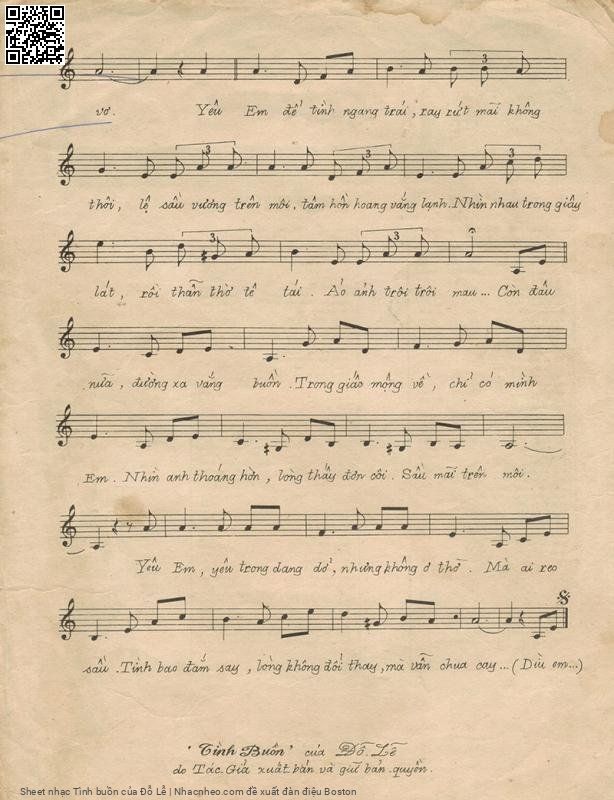 vơ. Yêu Em để tình ngang trái, ray rứt mãi không
thôi, lệ sầu vương trên môi, tâm hồn hoang vắng lạnh. Nhìn nhau trong giây
lát, rồi thẫn thờ tê tái. Ảo ảnh trôi trôi mau... Còn đâu
nữa, đường xa vắng buồn. Trong giấc mộng về, chỉ có mình
Em. Nhìn anh thoáng hờn, lòng thấy đơn côi. Sầu mãi trên môi.
Yêu Em, yêu trong dang dở, nhưng không ơ thờ. Mà ai reo
sầu. Tình bao đắm say, lòng không đổi thay, mà vẫn chua cay... (Dìu em...)
'Tình Buồn' của Đỗ Lễ
do Tác Giả xuất bản và giữ bản quyền.
Sheet nhạc Tình buồn của Đỗ Lễ | Nhacnheo.com đề xuất đàn điệu Boston